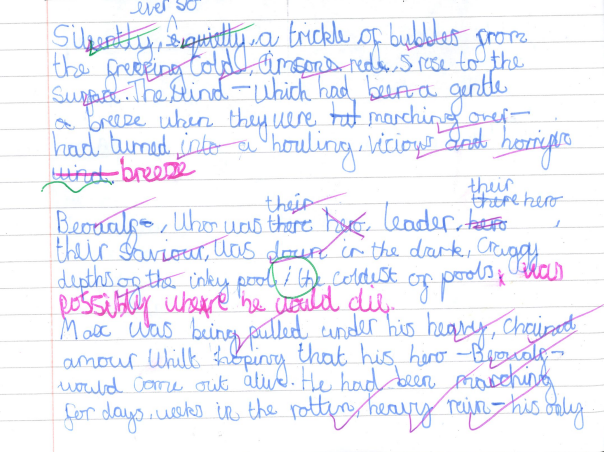 ever so
Silently, quietly, a trickle of bubbles from
the freezing cold, crimson reds, rose to the
surface. The wind - which had been a gentle
a breeze when they were marching over -
had turned into a howling, vicious and horrific
wind breeze
their their
Beowulf, who was there hero, leader, hero there hero,
their saviour, was down in the dark, craggy
depths of the inky pool, the coldest of pools, was
possibly where he would die.
Max was being pulled under his heavy, chained
amour whilt hoping that his hero - Beowulf -
would come out alive. He had been marching
for days, weeks in the rotten, heavy rain - his only